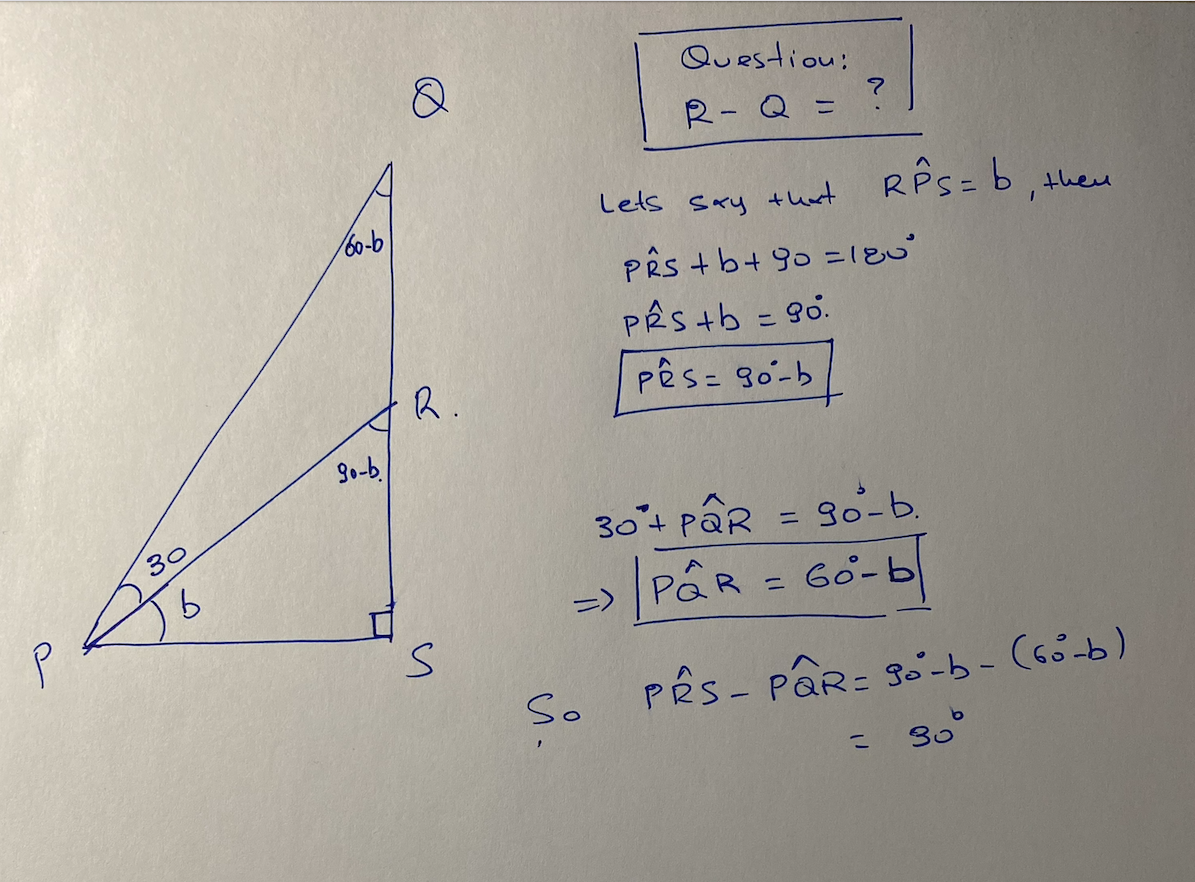 Q
60-b
R.
90-b.
30
b
P
S
Question:
R - Q = ?
Lets say that RP̂S = b, then
PR̂S + b + 90 = 180°
PR̂S + b = 90°.
PR̂S = 90°-b
30° + PQ̂R = 90°-b.
=> PQ̂R = 60°-b
So PR̂S - PQ̂R = 90°-b-(60°-b)
= 30°